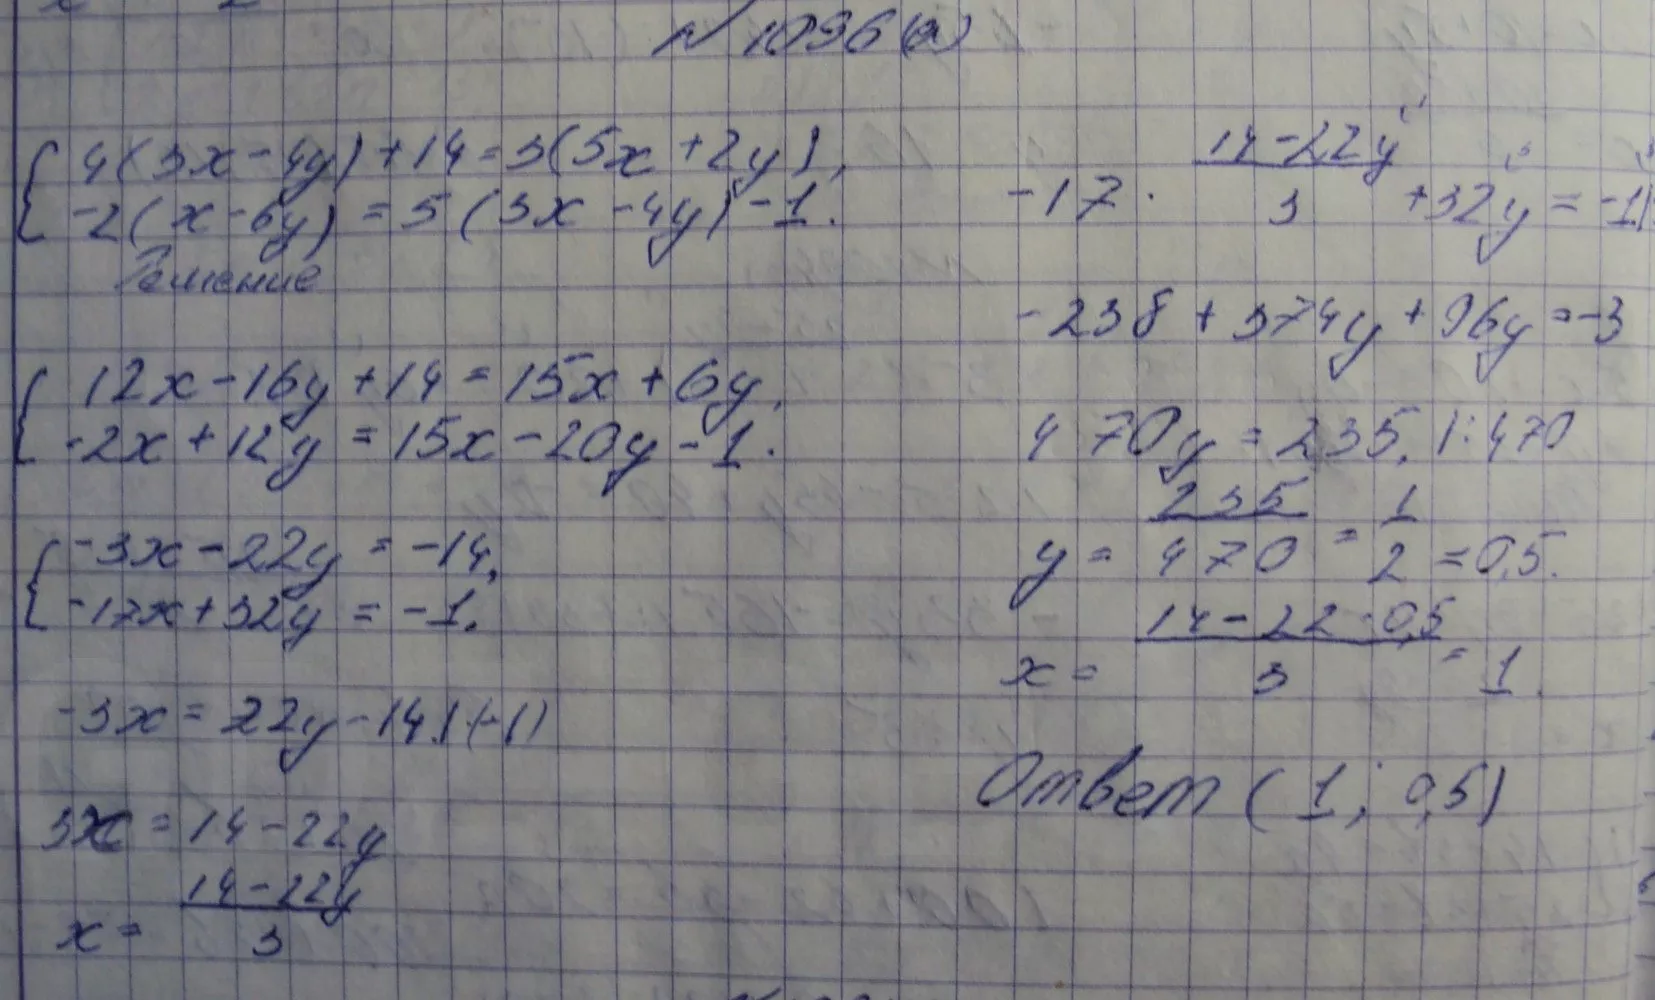 № 1096(а)
4(3x-4y)+14=3(5x+2y),
-2(x-6y)=5(3x-4y)-1.
Решение
12x-16y+14=15x+6y,
-2x+12y=15x-20y-1.
-3x-22y=-14,
-17x+32y=-1.
-3x=22y-14 |·(-1)
3x=14-22y
x=\frac{14-22y}{3}
-17·\frac{14-22y}{3}+32y=-1|
-238+374y+96y=-3
470y=235. |:470
y=\frac{235}{470}=\frac{1}{2}=0,5.
x=\frac{14-22·0,5}{3}=1.
Ответ (1; 0,5)